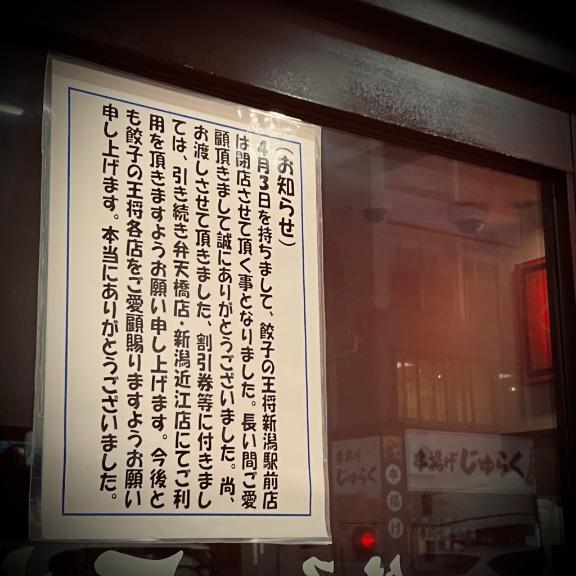 (お知らせ)
4月3日を持ちまして、餃子の王将新潟駅前店
は閉店させて頂く事となりました。長い間ご愛
顧頂きまして誠にありがとうございました。尚、
お渡しさせて頂きました、割引券等に付きまし
ては、引き続き弁天橋店・新潟近江店にてご利
用を頂きますようお願い申し上げます。今後と
も餃子の王将各店をご愛顧賜りますようお願い
申し上げます。本当にありがとうございました。
串揚げ
じゅらく
串揚げ
串揚げじゅらく